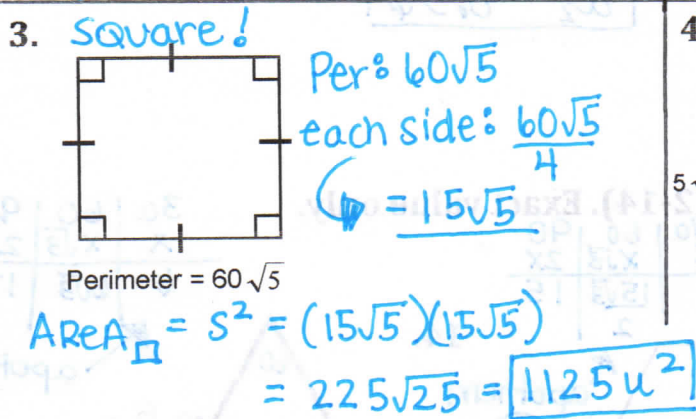 3. Square!
4
Per: 60√5
each side: 60√5/4
= 15√5
5
Perimeter = 60√5
AReA□ = s² = (15√5)(15√5)
= 225√25 = 1125 u²